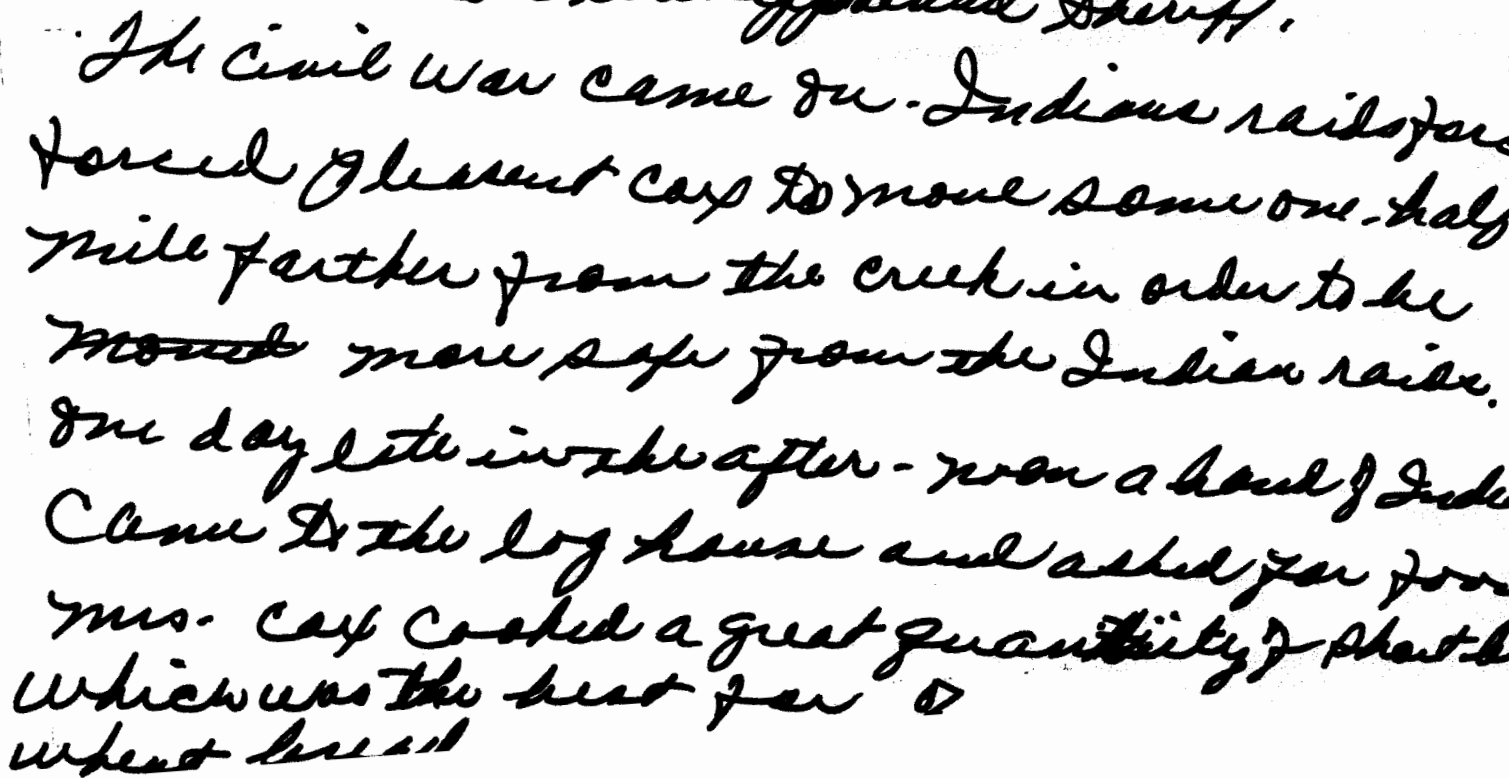 Sheriff.
The Civil War came on. Indians raids forc
forced Pleasent Cox to move some one-half
mile farther from the creek in order to be
moved more safe from the Indian raids.
One day late in the after-noon a band of Indi
Came to the log house and asked for foo
Mrs. Cox Cooked a great quantity of Short b
which was the best for
wheat bread